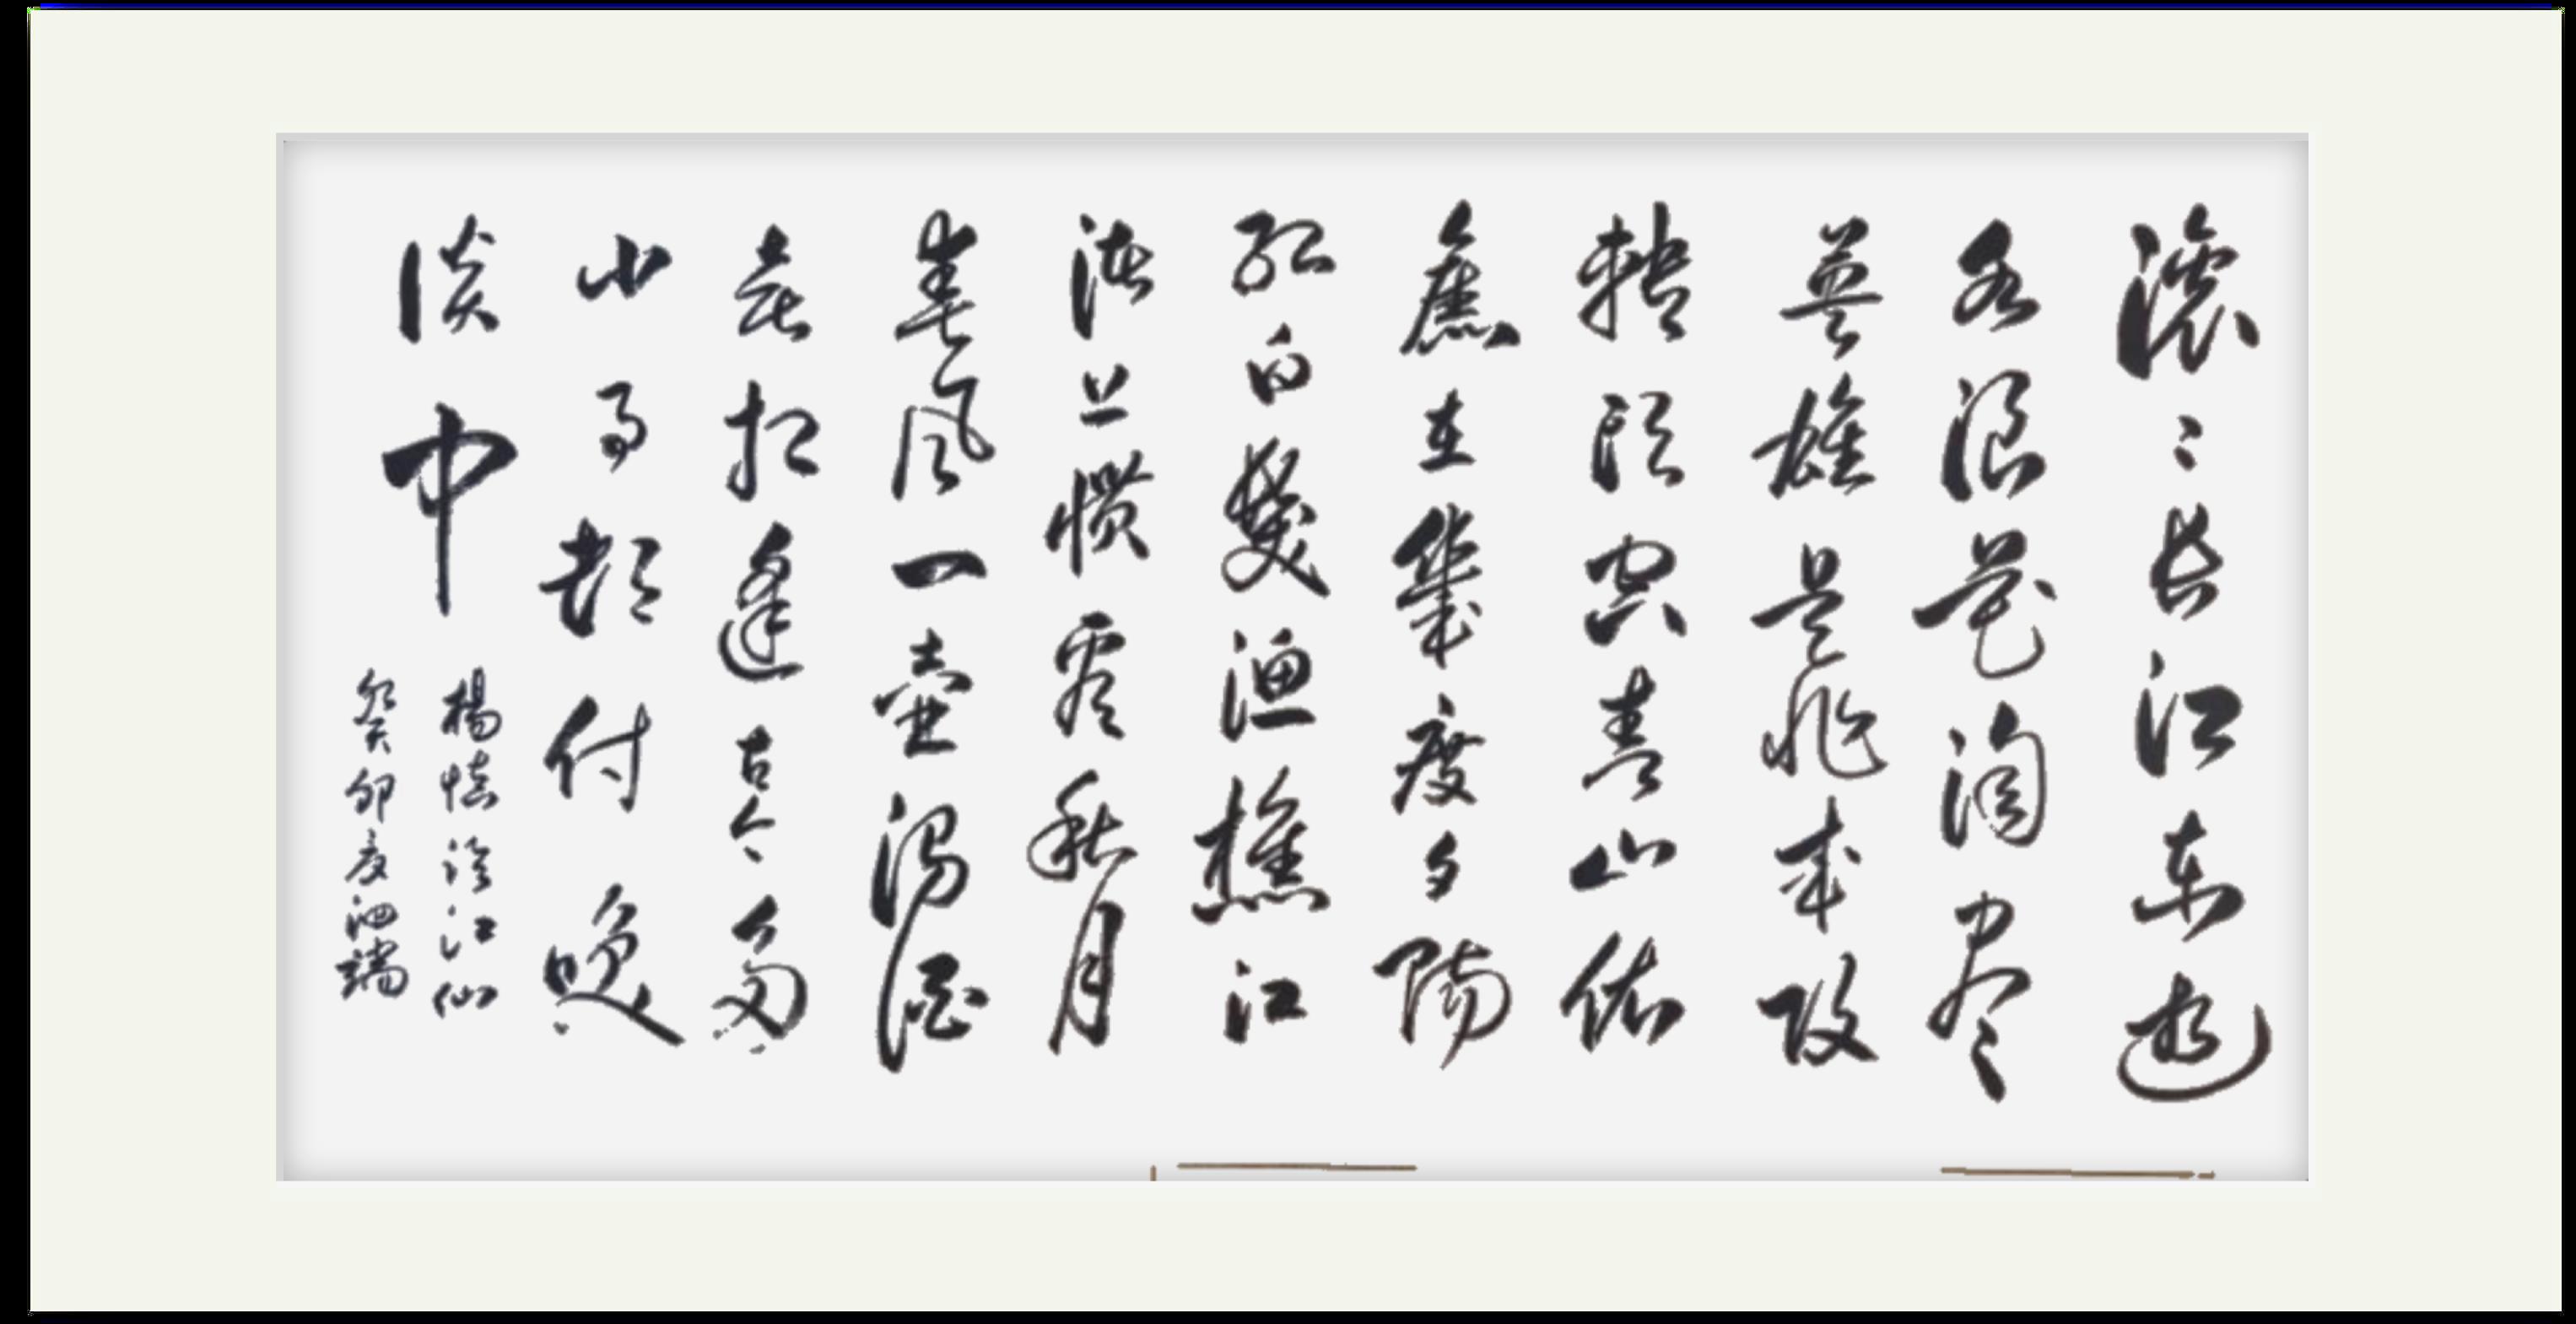 滚〻长江东逝
水浪花淘尽
英雄是非成败
转头空青山依
舊在幾度夕陽
红白髮渔樵江
渚上惯看秋月
春风一壶浊酒
喜相逢古今多
少事都付咲
谈中
楊慎临江仙
癸卯夏泗端